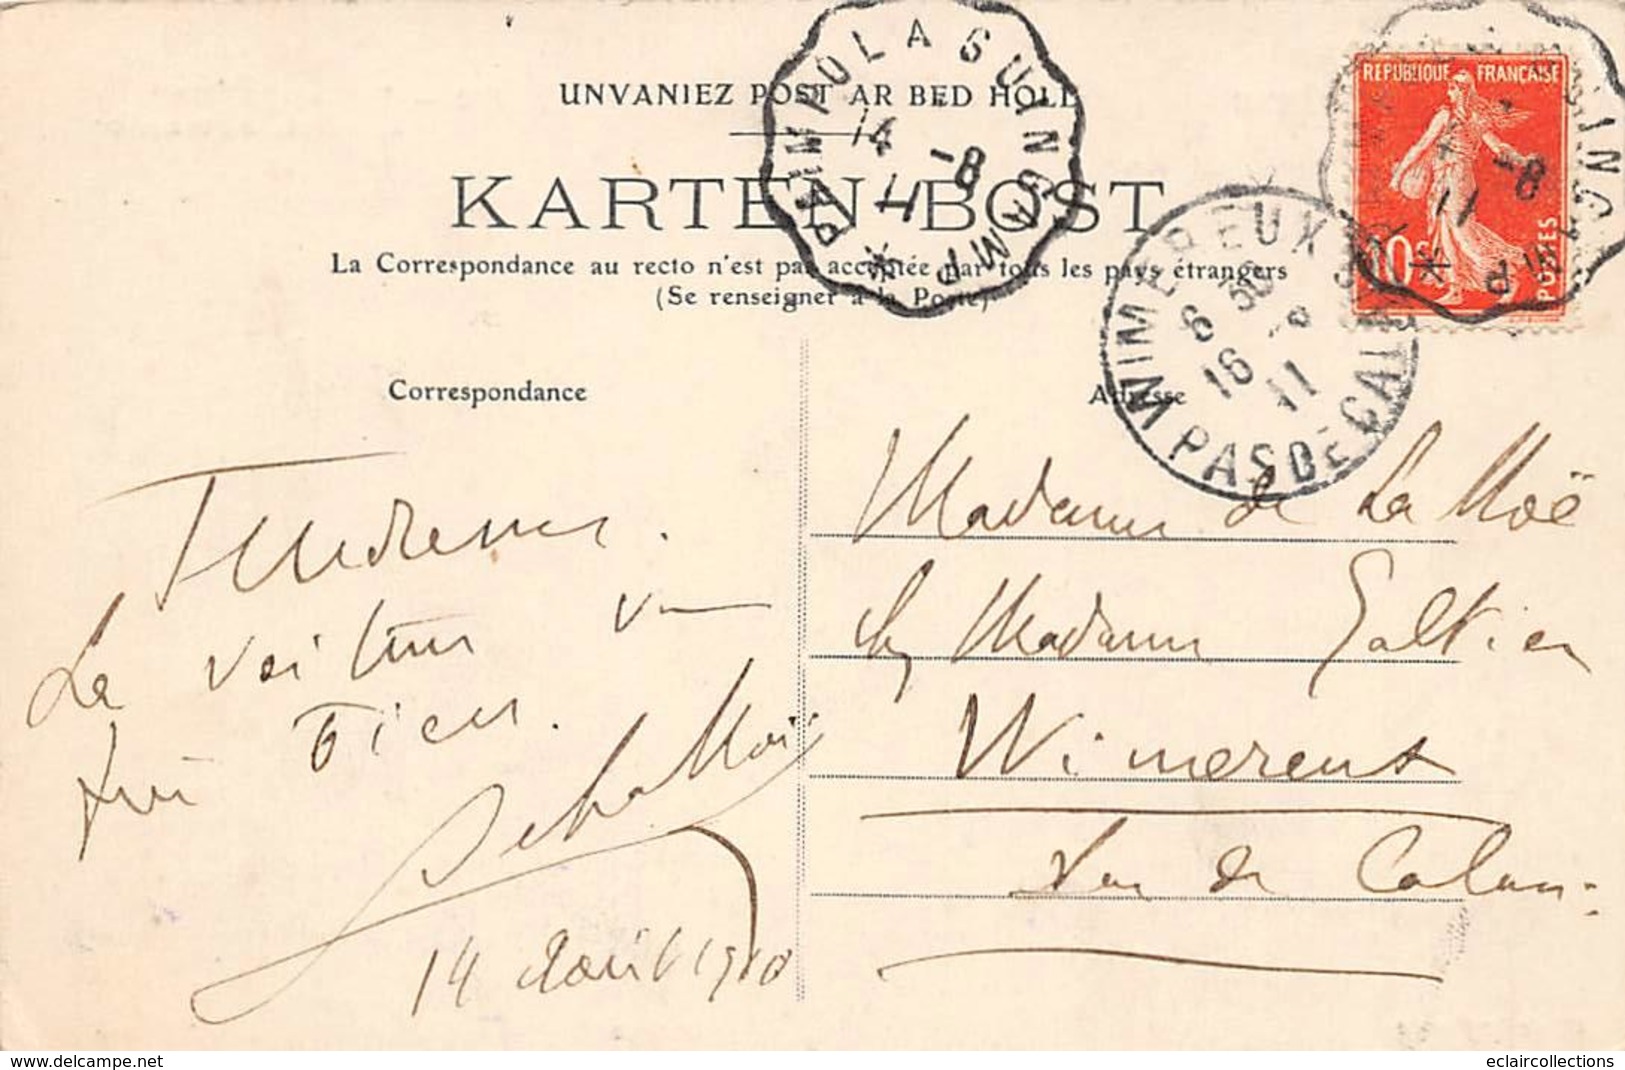 UNVANIEZ POST AR BED HOLL
KARTEN-BOST
La Correspondance au recto n'est pas acceptée par tous les pays étrangers
(Se renseigner à la Poste)
PAIMPOL A GUINGAMP
14 -8
11
REPUBLIQUE FRANÇAISE
10c
POSTES
WIMEREUX
6 30
16 -8
11
PAS DE CALAIS
Correspondance
Adresse
Tendresses.
La voiture va
bien.
14 Août 1910
Madame de La Moë
chez Madame Galtier
Wimereux
Pas de Calais
eclaircollections